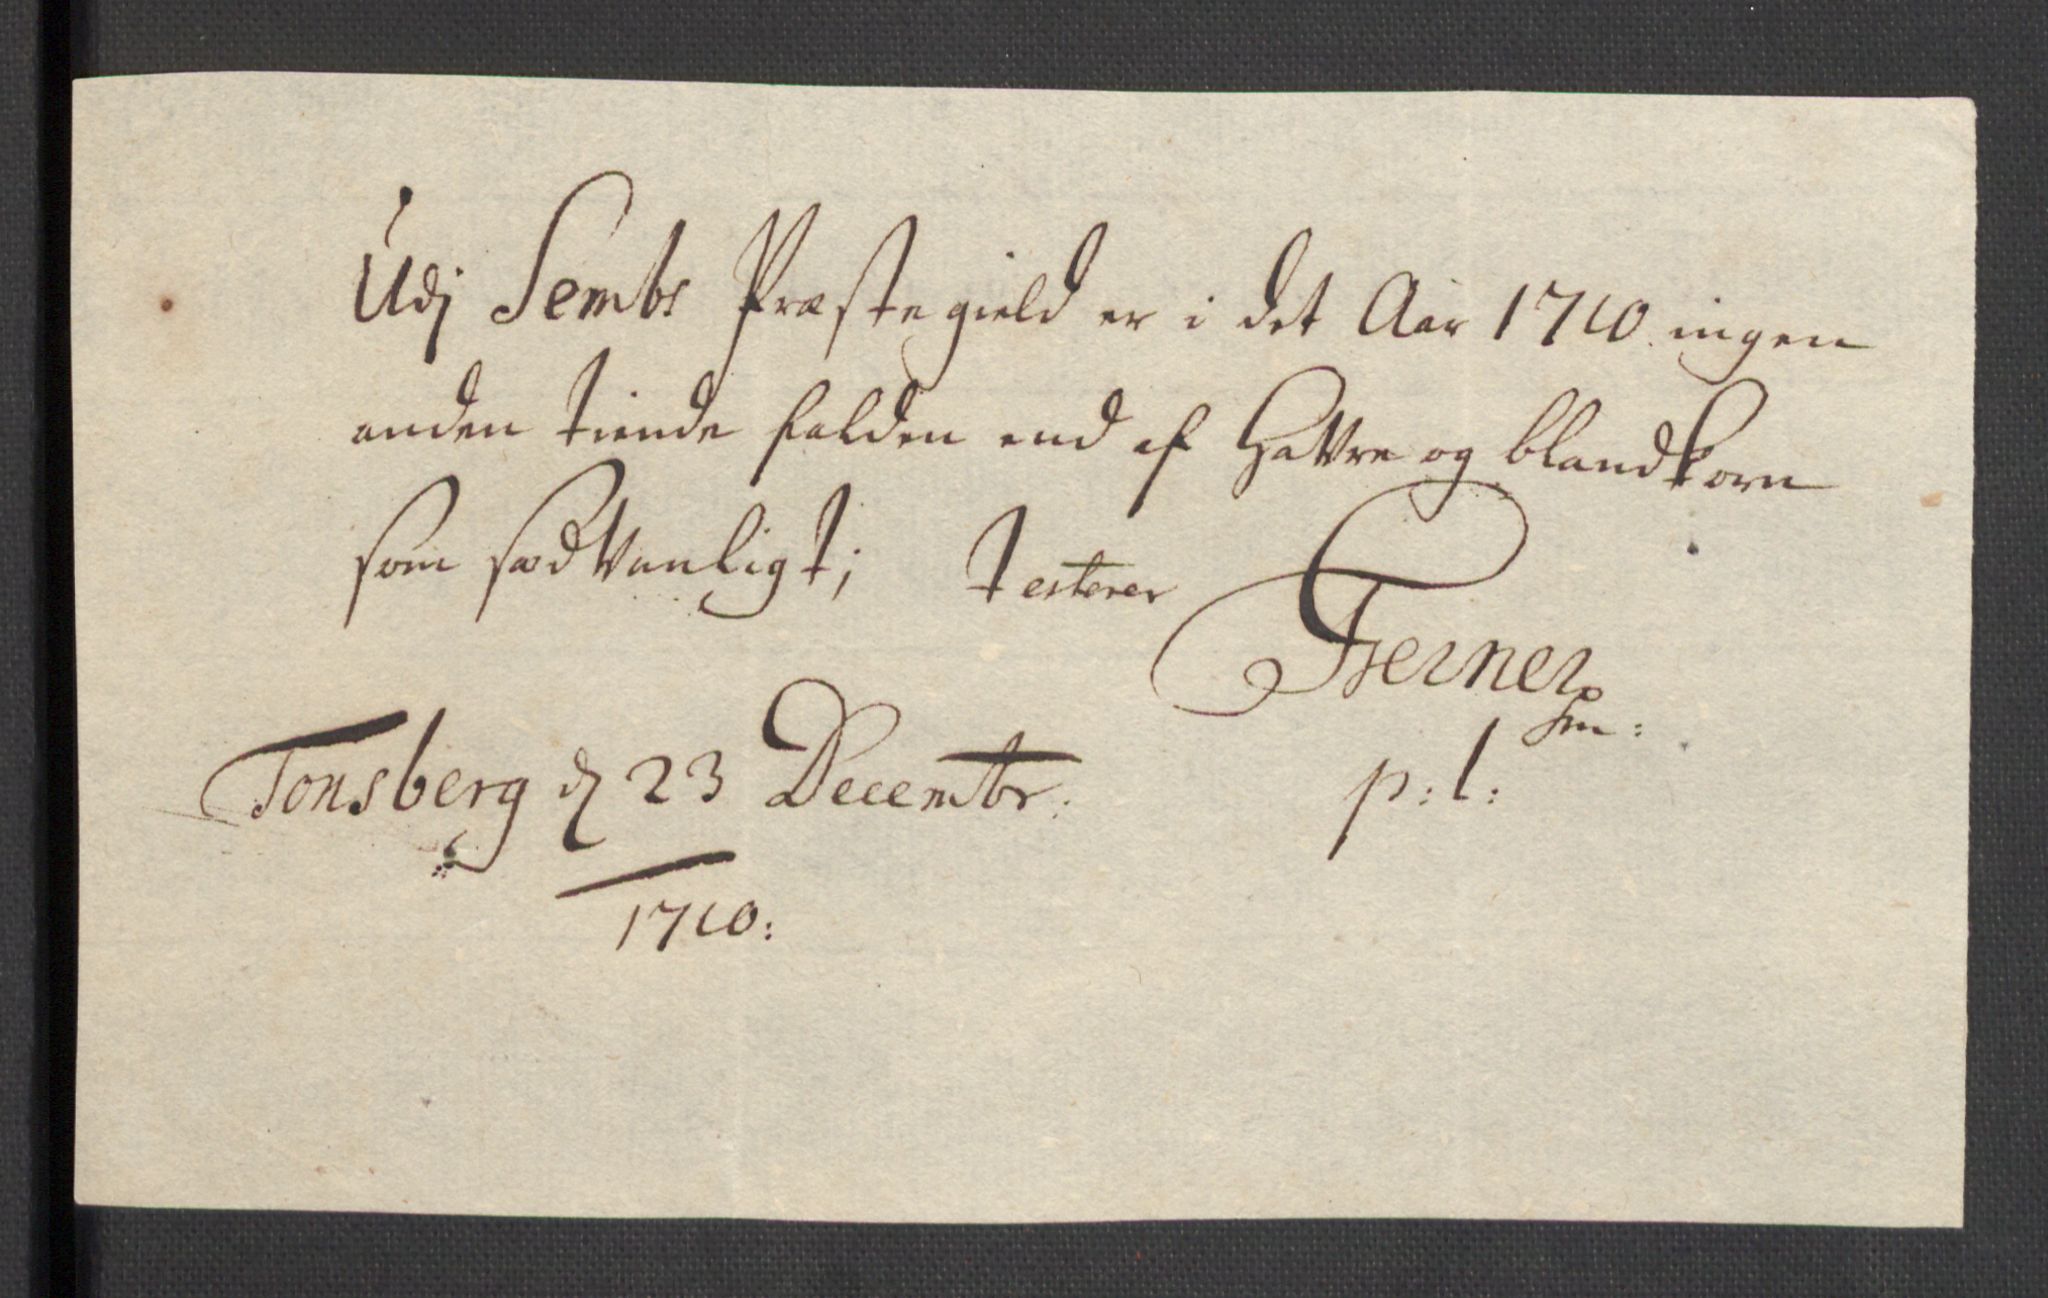 Udj Sembs Præstegield er i det Aar 1710 ingen
anden tiende falden end af Hafvre og blandkorn
som sædvanligt; testerer
Tferner
Tonsberg d 23 Decembr:
p: l:
1710: